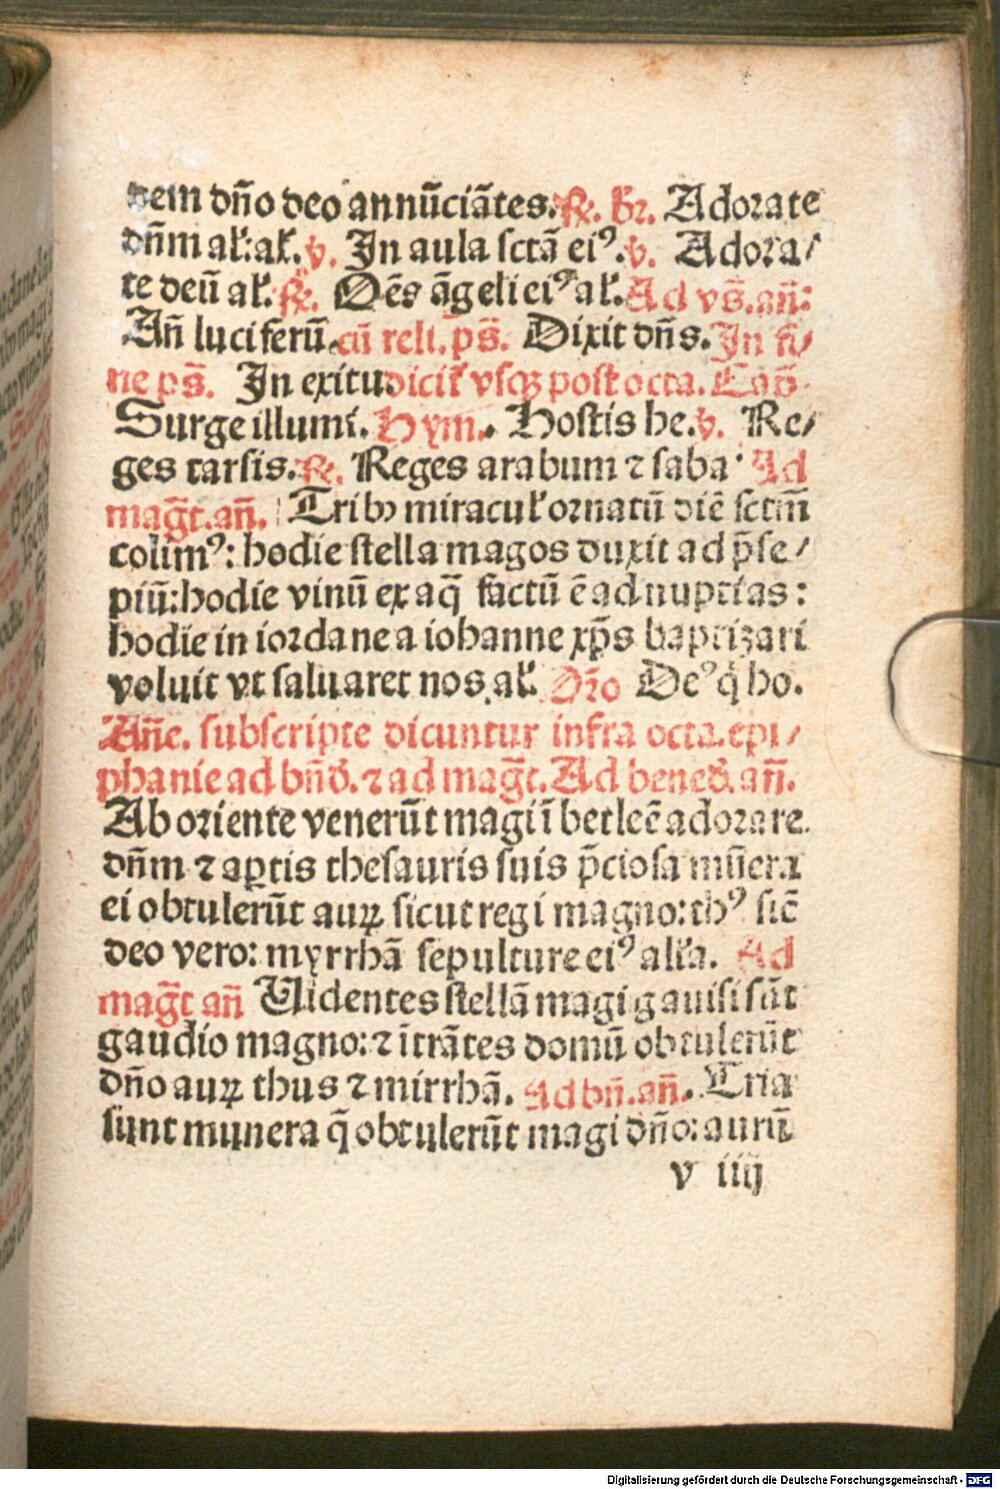 dem dn̄o deo annūciātes. ꝶ. br. Adorate
dn̄m aƚ: aƚ. v. In aula sctā eiꝰ. v. Adora/
te deū aƚ. ꝶ. Om̄s āgeli eiꝰ aƚ. Ad vs̄. an̄:
An̄ luciferū. cū reli. ps̄. Dixit dn̄s. In fi/
ne ps̄. In exitu dicit᷑ vsqꝫ post octa. Cap̄.
Surge illumi. Hym. Hostis he. v. Re/
ges tarsis. ꝶ. Reges arabum ⁊ saba. Ad
mag̅t. an̄. Tribꝰ miracuƚ ornatū diē sctm̄
colimꝰ: hodie stella magos duxit ad p̄se/
piū: hodie vinū ex aq̄ factū ē ad nuptias:
hodie in iordane a iohanne xp̄s baptizari
voluit vt saluaret nos aƚ. Or̄o Deꝰ q̇ ho.
An̄e. subscripte dicuntur infra octa. epi/
phanie ad bn̄d̄. ⁊ ad mag̅t. Ad bened̄. an̄.
Ab oriente venerūt magi ī betleē adorare
dn̄m ⁊ aꝑtis thesauris suis p̄ciosa mūera
ei obtulerūt auꝝ sicut regi magno: thꝰ sic̄
deo vero: myrrhā sepulture eiꝰ alƚa. Ad
mag̅t an̄ Uidentes stellā magi gauisi sūt
gaudio magno: ⁊ ītrātes domū obtulerūt
dn̄o auꝝ thus ⁊ mirrhā. Ad bn̄. an̄. Tria
sunt munera q̄ obtulerūt magi dn̄o: aurū
v iiij
Digitalisierung gefördert durch die Deutsche Forschungsgemeinschaft - DFG